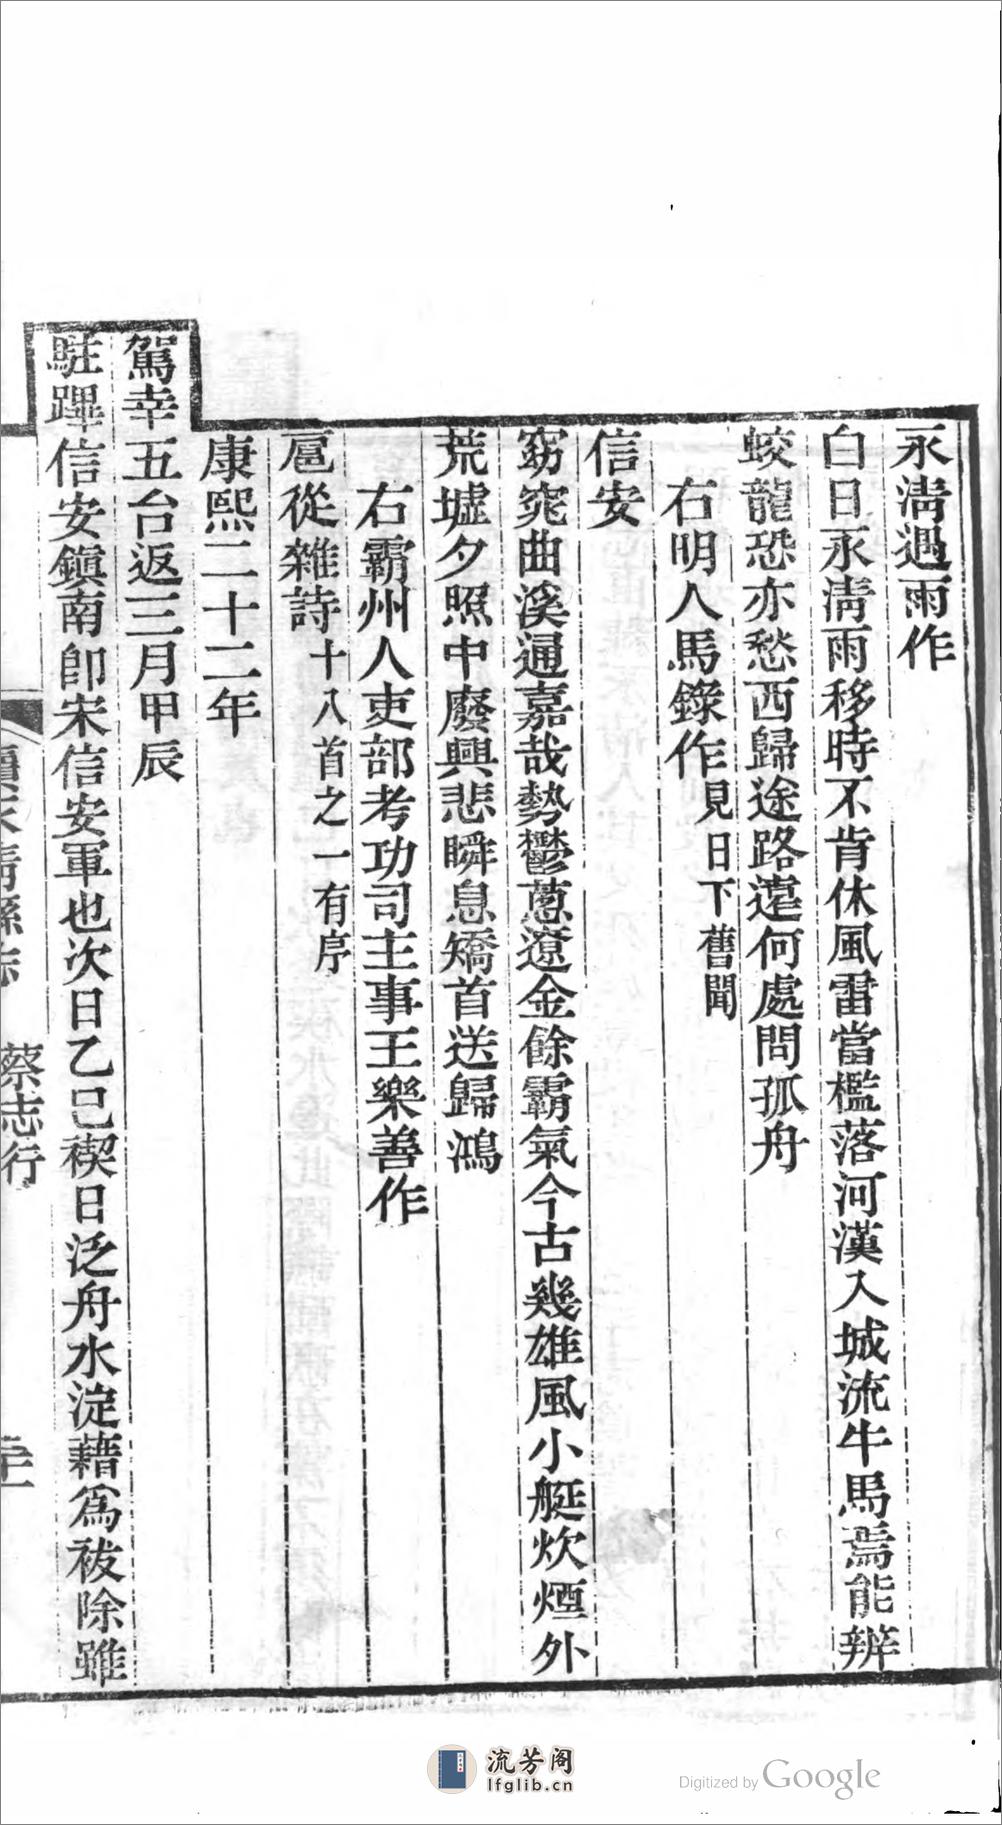 永淸遇雨作
白日永淸雨移時不肯休風雷當檻落河漢入城流牛馬焉能辨
蛟龍恐亦愁西歸途路遠何處問孤舟
右明人馬錄作見日下舊聞
信安
窈窕曲溪通嘉哉勢鬱蔥遼金餘霸氣今古幾雄風小艇炊煙外
荒墟夕照中廢興悲瞬息矯首送歸鴻
右霸州人吏部考功司主事王樂善作
扈從雜詩十八首之一有序
康熙二十二年
駕幸五台返三月甲辰
駐蹕信安鎭南卽宋信安軍也次日乙巳禊日泛舟水淀藉爲祓除雖
蔡志行
流芳阁
lfglib.cn
Digitized by Google